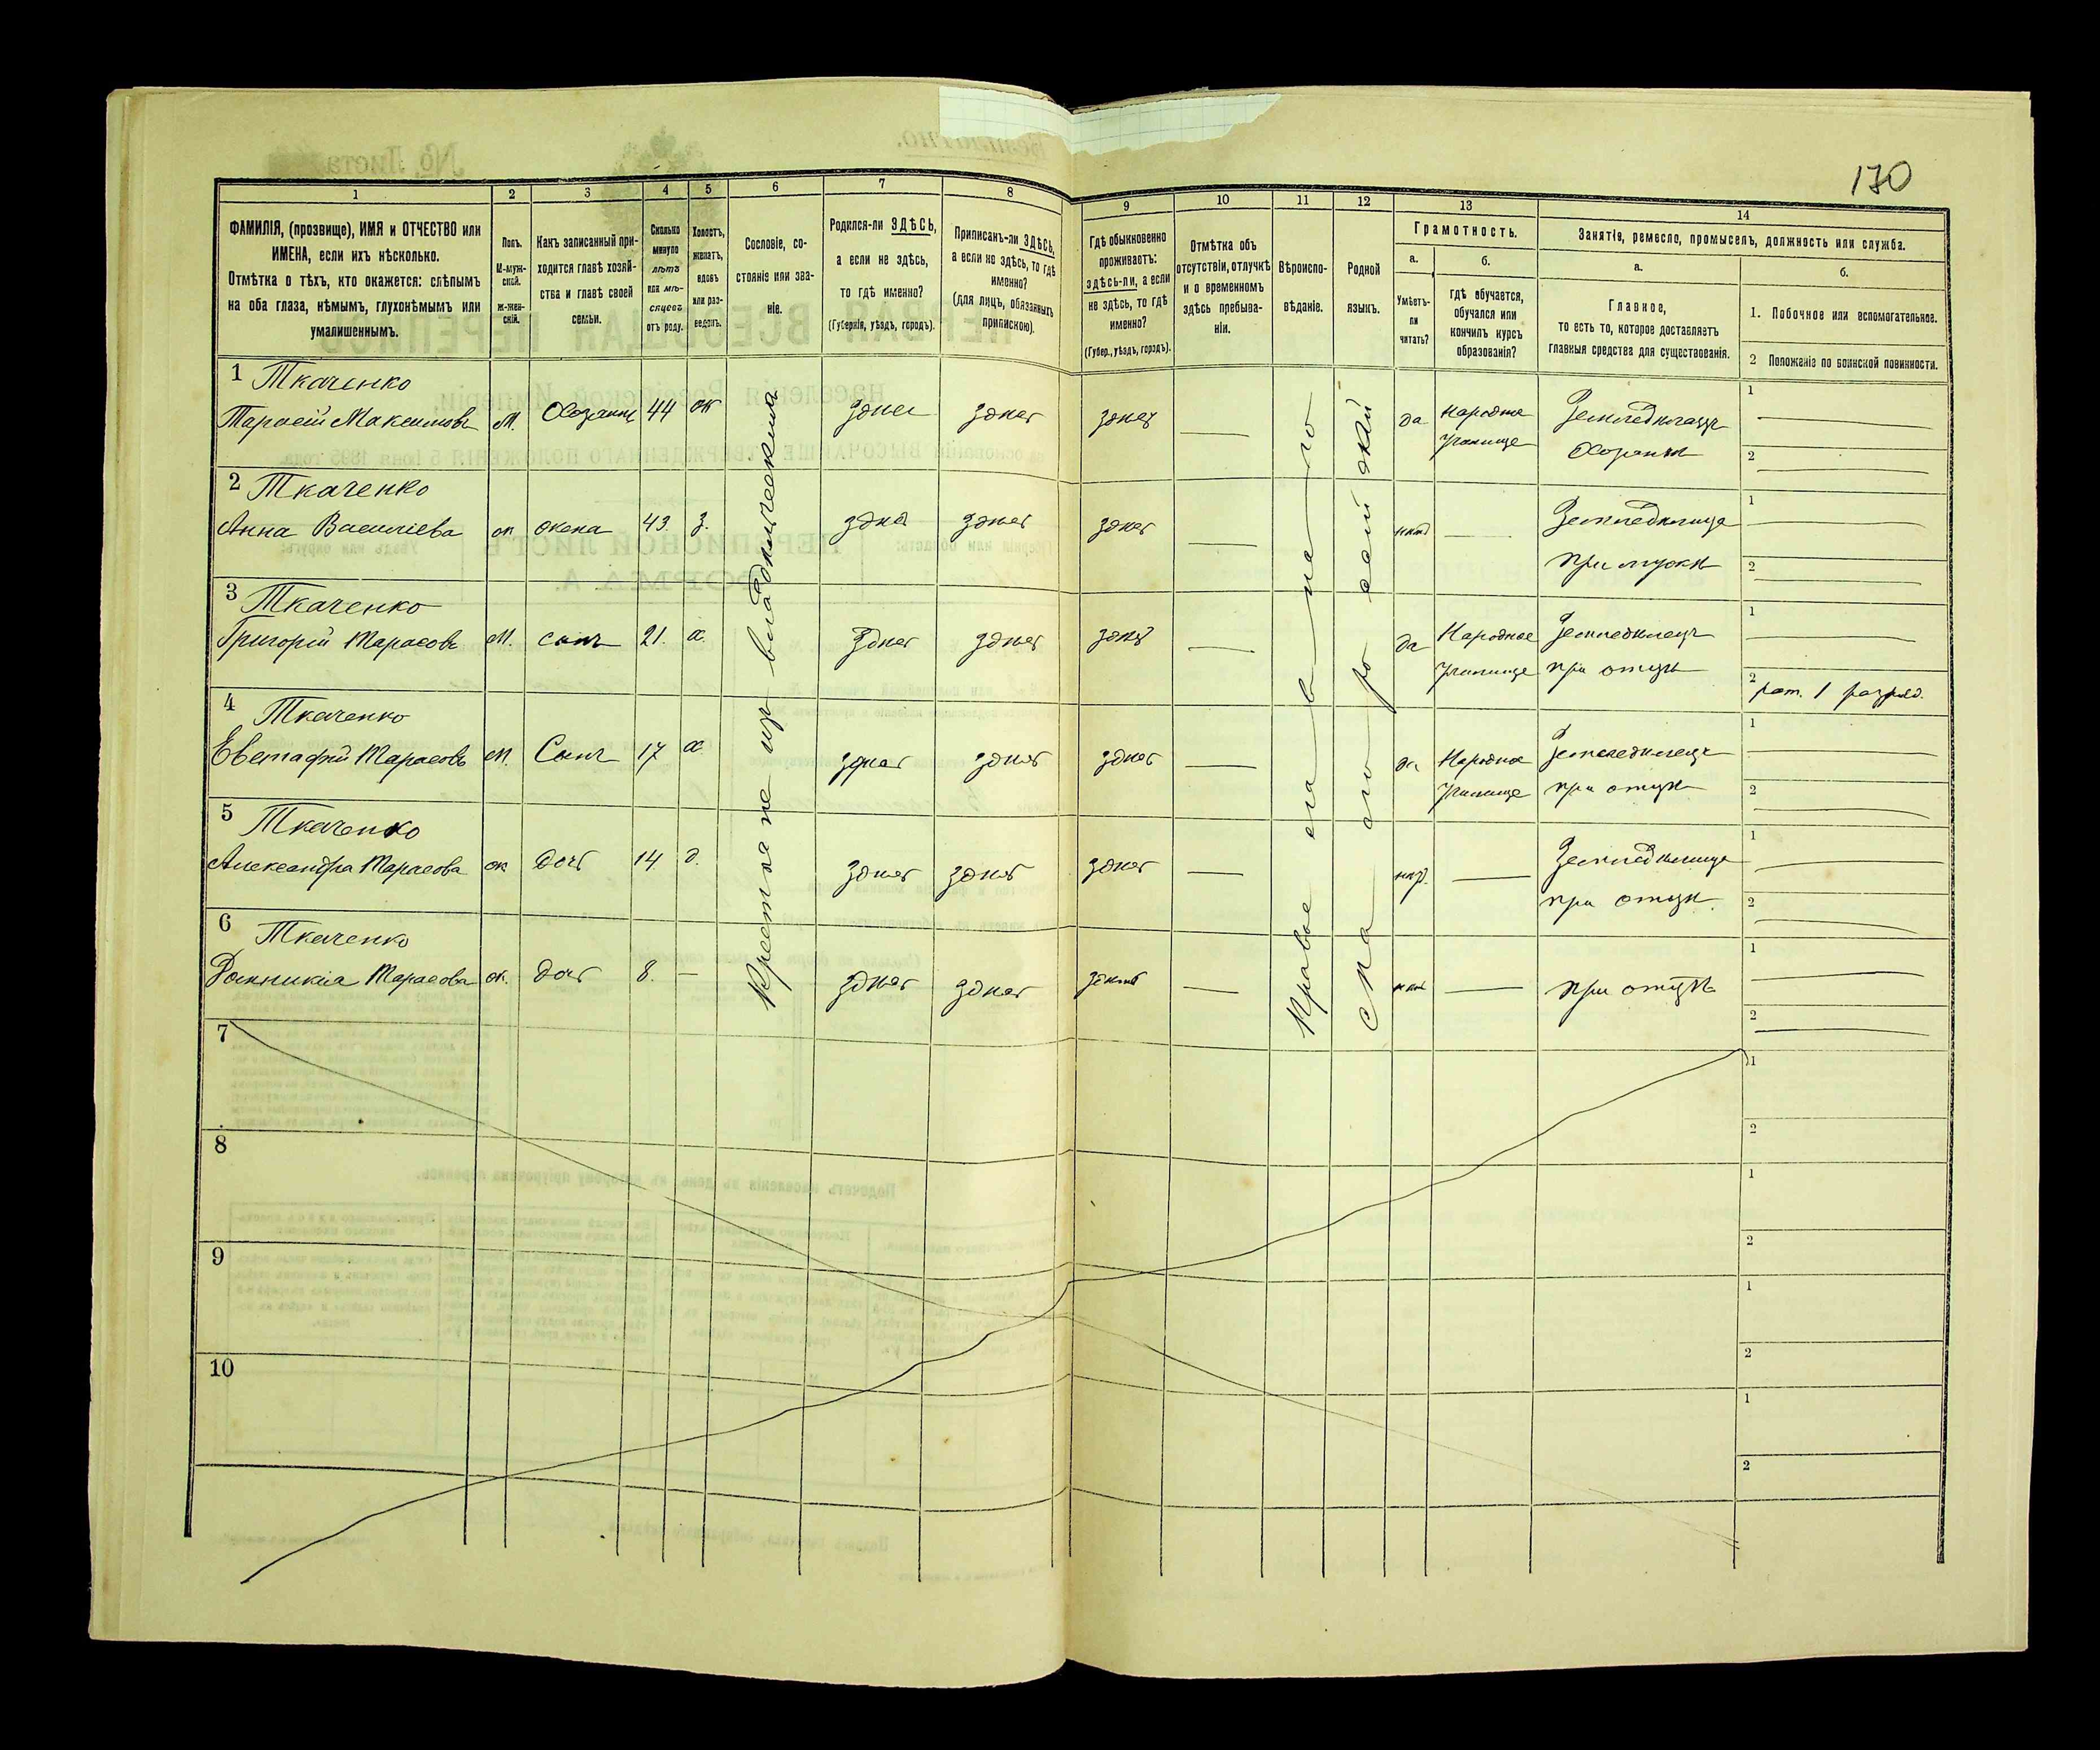 170
1
2
3
4
5
6
7
8
9
10
11
12
13
14
ФАМИЛІЯ, (прозвище), ИМЯ и ОТЧЕСТВО или
ИМЕНА, если ихъ нѣсколько.
Отмѣтка о тѣхъ, кто окажется: слѣпымъ
на оба глаза, нѣмымъ, глухонѣмымъ или
умалишеннымъ.
Полъ.
М-муж-
ской.
ж-жен-
скій.
Какъ записанный при-
ходится главѣ хозяй-
ства и главѣ своей
семьи.
Сколько
минуло
лѣтъ
или мѣ-
сяцевъ
отъ роду.
Холостъ,
женатъ,
вдовъ
или раз-
веденъ.
Сословіе, со-
стояніе или зва-
ніе.
Родился-ли ЗДѢСЬ,
а если не здѣсь,
то гдѣ именно?
(Губернія, уѣздъ, городъ).
Приписанъ-ли ЗДѢСЬ,
а если не здѣсь, то гдѣ
именно?
(для лицъ, обязанныхъ
припискою).
Гдѣ обыкновенно
проживаетъ:
здѣсь-ли, а если
не здѣсь, то гдѣ
именно?
(Губер., уѣздъ, городъ).
Отмѣтка объ
отсутствіи, отлучкѣ
и о временномъ
здѣсь пребыва-
ніи.
Вѣроиспо-
вѣданіе.
Родной
языкъ.
Грамотность.
а.
Умѣетъ-
ли
читать?
б.
гдѣ обучается,
обучался или
кончилъ курсъ
образованія?
Занятія, ремесло, промыселъ, должность или служба.
а.
Главное,
то есть то, которое доставляетъ
главныя средства для существованія.
б.
1. Побочное или вспомогательное.
2 Положеніе по воинской повинности.
Крестьяне изъ владѣльческихъ
Православнаго
Малороссійскій
1 Ткаченко
Тарасій Максимовъ М. Хозяинъ 44 ж здѣсь здѣсь здѣсь — да народное
училище
Земледѣлецъ
Хозяинъ
1
2
2 Ткаченко
Анна Василіева ж жена 43. з. здѣсь здѣсь здѣсь —
Земледѣлица
при мужѣ
1
2
3 Ткаченко
Григорій Тарасовъ М. сынъ 21. х. здѣсь здѣсь здѣсь — да Народное
училище
Земледѣлецъ
при отцѣ
1
2 рат. 1 разряд.
4 Ткаченко
Евстафій Тарасовъ М. Сынъ 17 х здѣсь здѣсь здѣсь — да Народное
училище
Земледѣлецъ
при отцѣ
1
2
5 Ткаченко
Александра Тарасова ж дочь 14 д. здѣсь здѣсь здѣсь —
Земледѣлица
при отцѣ.
1
2
6 Ткаченко
Домникія Тарасова ж. дочь 8. — здѣсь здѣсь здѣсь —
при отцѣ
1
2
7
1
2
8
1
2
9
1
2
10
1
2